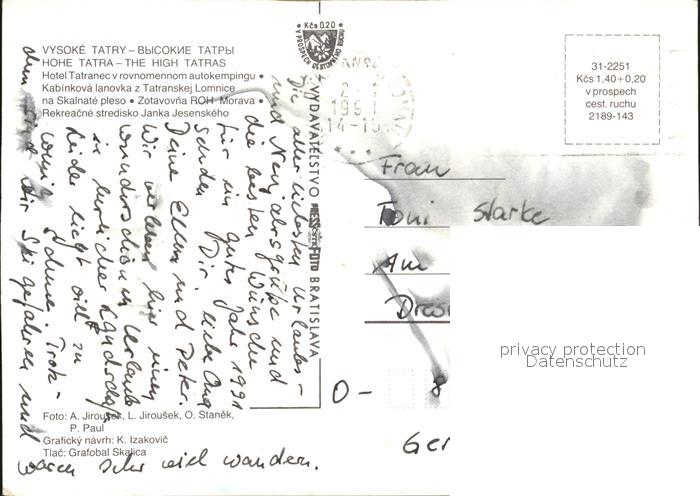 VYSOKÉ TATRY – ВЫСОКИЕ ТАТРЫ
HOHE TATRA – THE HIGH TATRAS
Hotel Tatranec v rovnomennom autokempingu •
Kabínková lanovka z Tatranskej Lomnice
na Skalnaté pleso • Zotavovňa ROH Morava •
Rekreačné stredisko Janka Jesenského
Die allerliebsten Urlaubs-
und Neujahrsgrüße und
die besten Wünsche
für ein gutes Jahr 1991
senden Dir, liebe Oma
Deine Ellen und Peter.
Wir verleben hier einen
wunderschönen Urlaub
in herrlicher Landschaft.
Leider liegt viel zu
wenig Schnee. Trotz-
dem sind wir Ski gefahren und
waren sehr viel wandern.
Foto: A. Jiroušek, L. Jiroušek, O. Staněk,
P. Paul
Grafický návrh: K. Izakovič
Tlač: Grafobal Skalica
• Kčs 0,20 •
V PROSPECH CESTOVNÉHO RUCHU
VYDAVATEĽSTVO PRESSFOTO BRATISLAVA
199
14-15
31-2251
Kčs 1,40 + 0,20
v prospech
cest. ruchu
2189-143
Frau
Toni Starke
Am
Dres
O- 8
Ger
privacy protection
Datenschutz